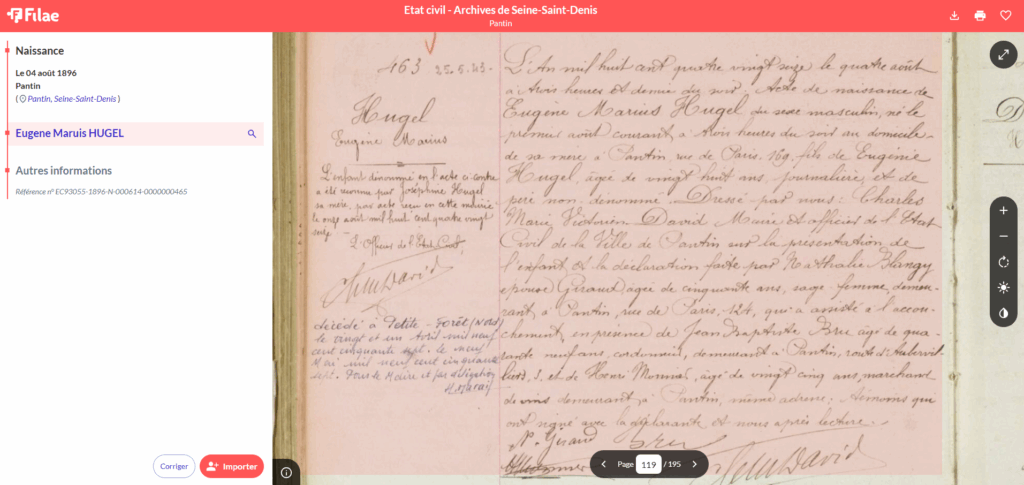 Filae
Etat civil - Archives de Seine-Saint-Denis
Pantin
Naissance
Le 04 août 1896
Pantin
( Pantin, Seine-Saint-Denis )
Eugene Maruis HUGEL
Autres informations
Référence n° EC93055-1896-N-000614-0000000465
Corriger
Importer
463 25.6.43.
Hugel
Eugène Marius
L'enfant dénommé en l'acte ci-contre
a été reconnu par Joséphine Hugel
sa mère, par acte reçu en cette mairie
le onze août mil huit cent quatre vingt
seize.
L'Officier de l'Etat Civil,
décédé à Petite-Forêt (Nord)
le vingt et un Avril mil neuf
cent cinquante sept. le neuf
Mai mil neuf cent cinquante
sept. Pour le Maire et par délégation
L'An mil huit cent quatre vingt seize le quatre août
à trois heures et demie du soir. Acte de naissance de
Eugène Marius Hugel du sexe masculin, né le
premier août courant, à trois heures du soir au domicile
de sa mère à Pantin rue de Paris, 169, fils de Eugénie
Hugel, âgée de vingt huit ans, journalière, et de
père non dénommé. Dressé par nous : Charles
Marie Victorien David Maire et officier de l'Etat
Civil de la Ville de Pantin sur la présentation de
l'enfant et la déclaration faite par Nathalie Blangy
épouse Giraud, âgée de cinquante ans, sage-femme, demeu-
rant, à Pantin, rue de Paris, 124, qui a assisté à l'accou-
chement, en présence de Jean Baptiste Bru âgé de qua-
rante neuf ans, cordonnier, demeurant à Pantin, route d'Aubervil-
liers, 3. et de Henri Monnier, âgé de vingt cinq ans, marchand
de vins demeurant, à Pantin, même adresse; témoins qui
ont signé avec la déclarante et nous après lecture.
N. Giraud Bru
David
Page 119 / 195